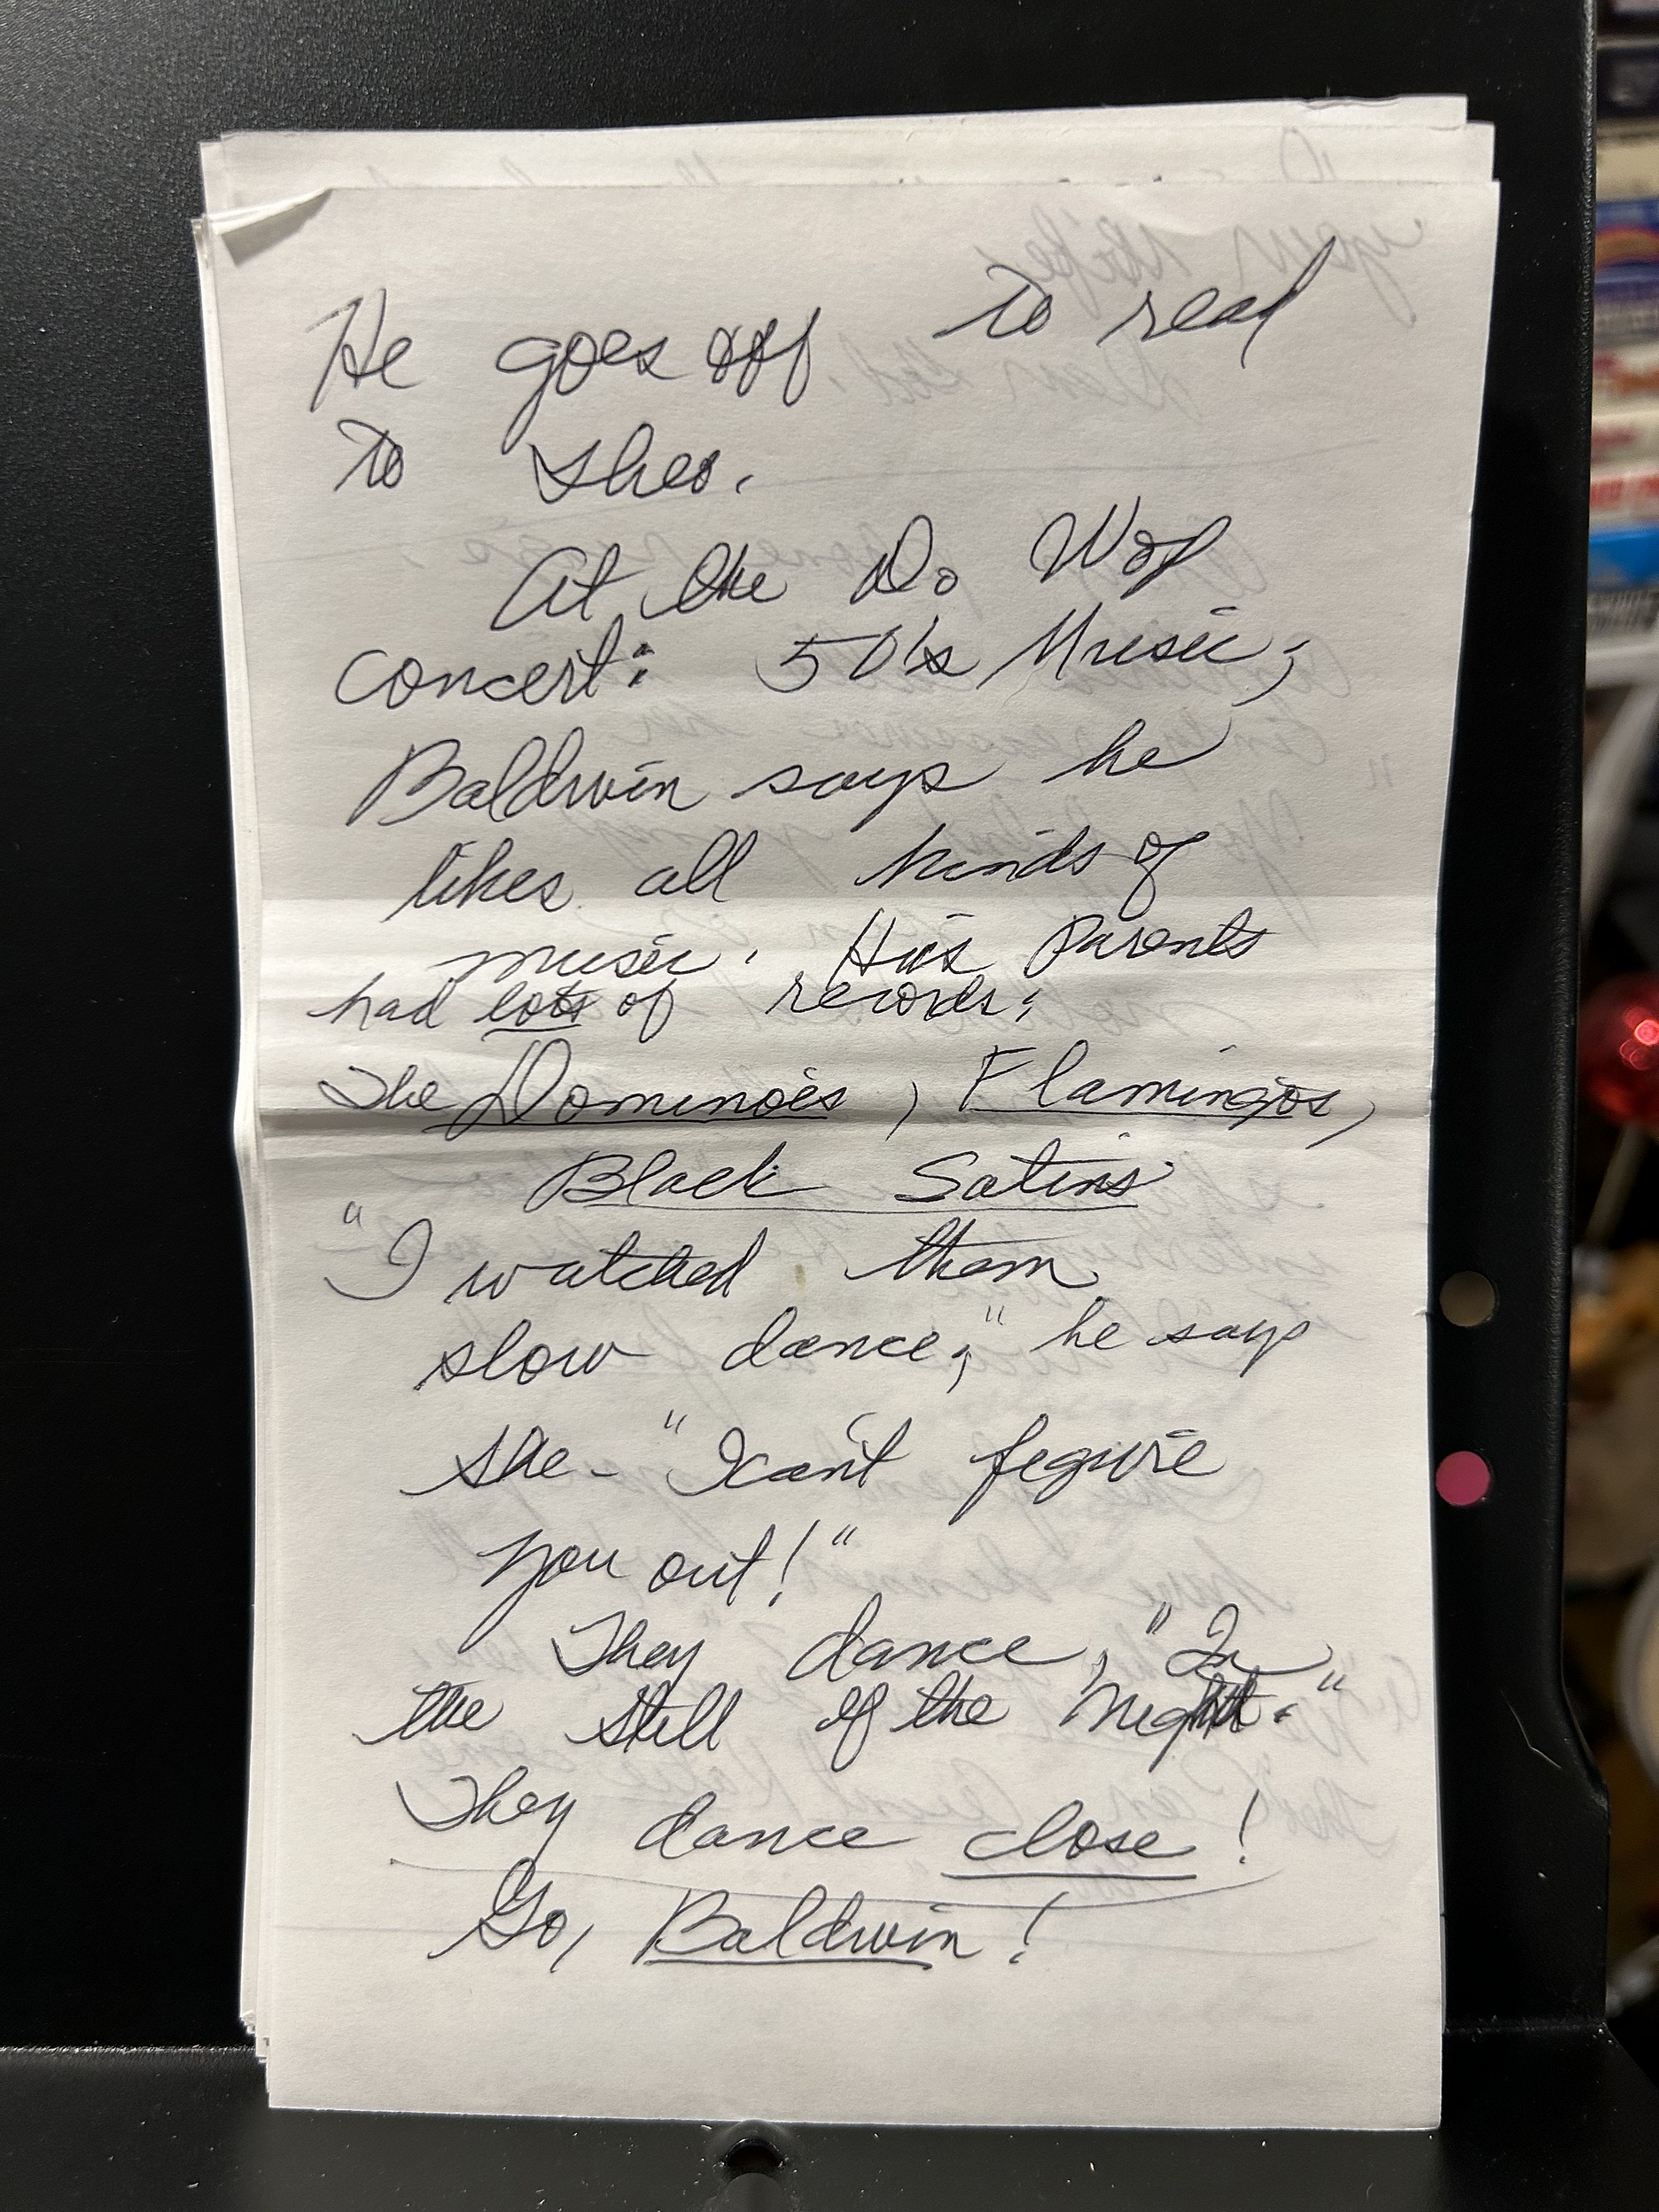 He goes off to read
to Shes.
At the Do Wop
concert: 50's Music;
Baldwin says he
likes all kinds of
music. His Parents
had lots of records:
The Dominoes, Flamingos,
Black Satins
"I watched them
slow dance," he says
she - "I can't figure
you out!"
They dance, "In
the Still of the Night."
They dance close!
Go, Baldwin!